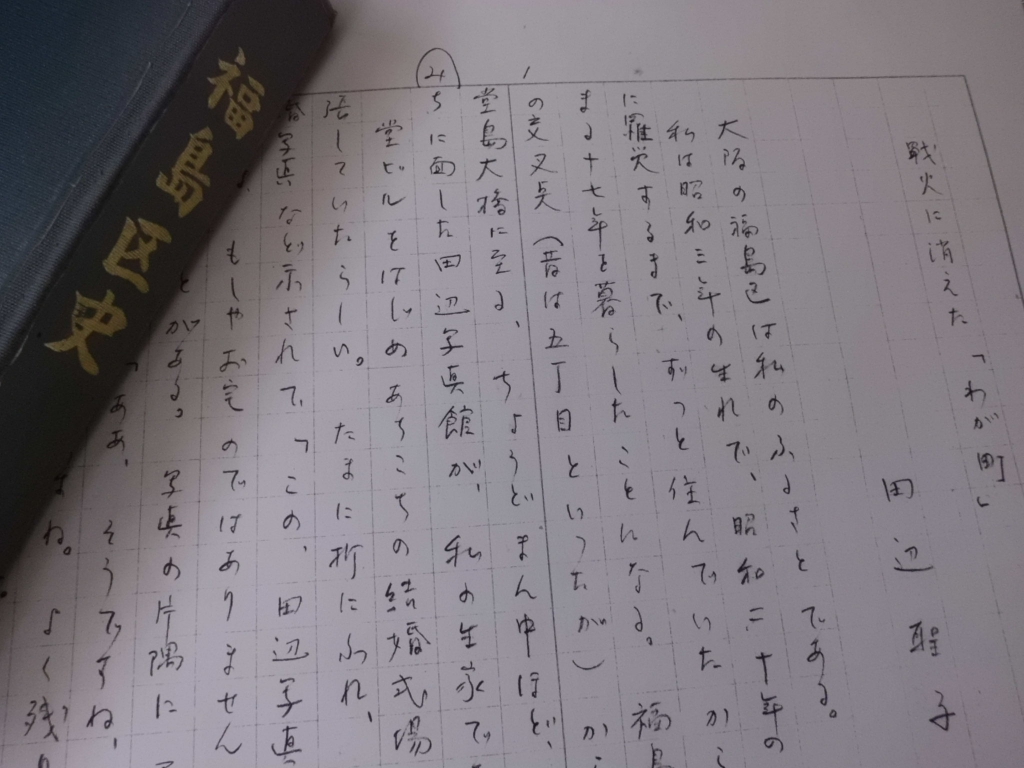 福島区史
戦火に消えた「わが町」
田辺聖子
大阪の福島区は私のふるさとである。
私は昭和三年の生れで、昭和二十年の
に罹災するまで、ずっと住んでいたから
まる十七年を暮らしたことになる。福島
の交叉点（昔は五丁目といったが）か
堂島大橋に至る、ちょうどまん中ほど、
ちに面した田辺写真館が、私の生家で
堂ビルをはじめあちこちの結婚式場
張していたらしい。たまに折にふれ、
写真など示されて、「この、田辺写真
もしやお宅のではありません
とがある。写真の片隅に
「ああ、そうですね、
ね。よく残り
1